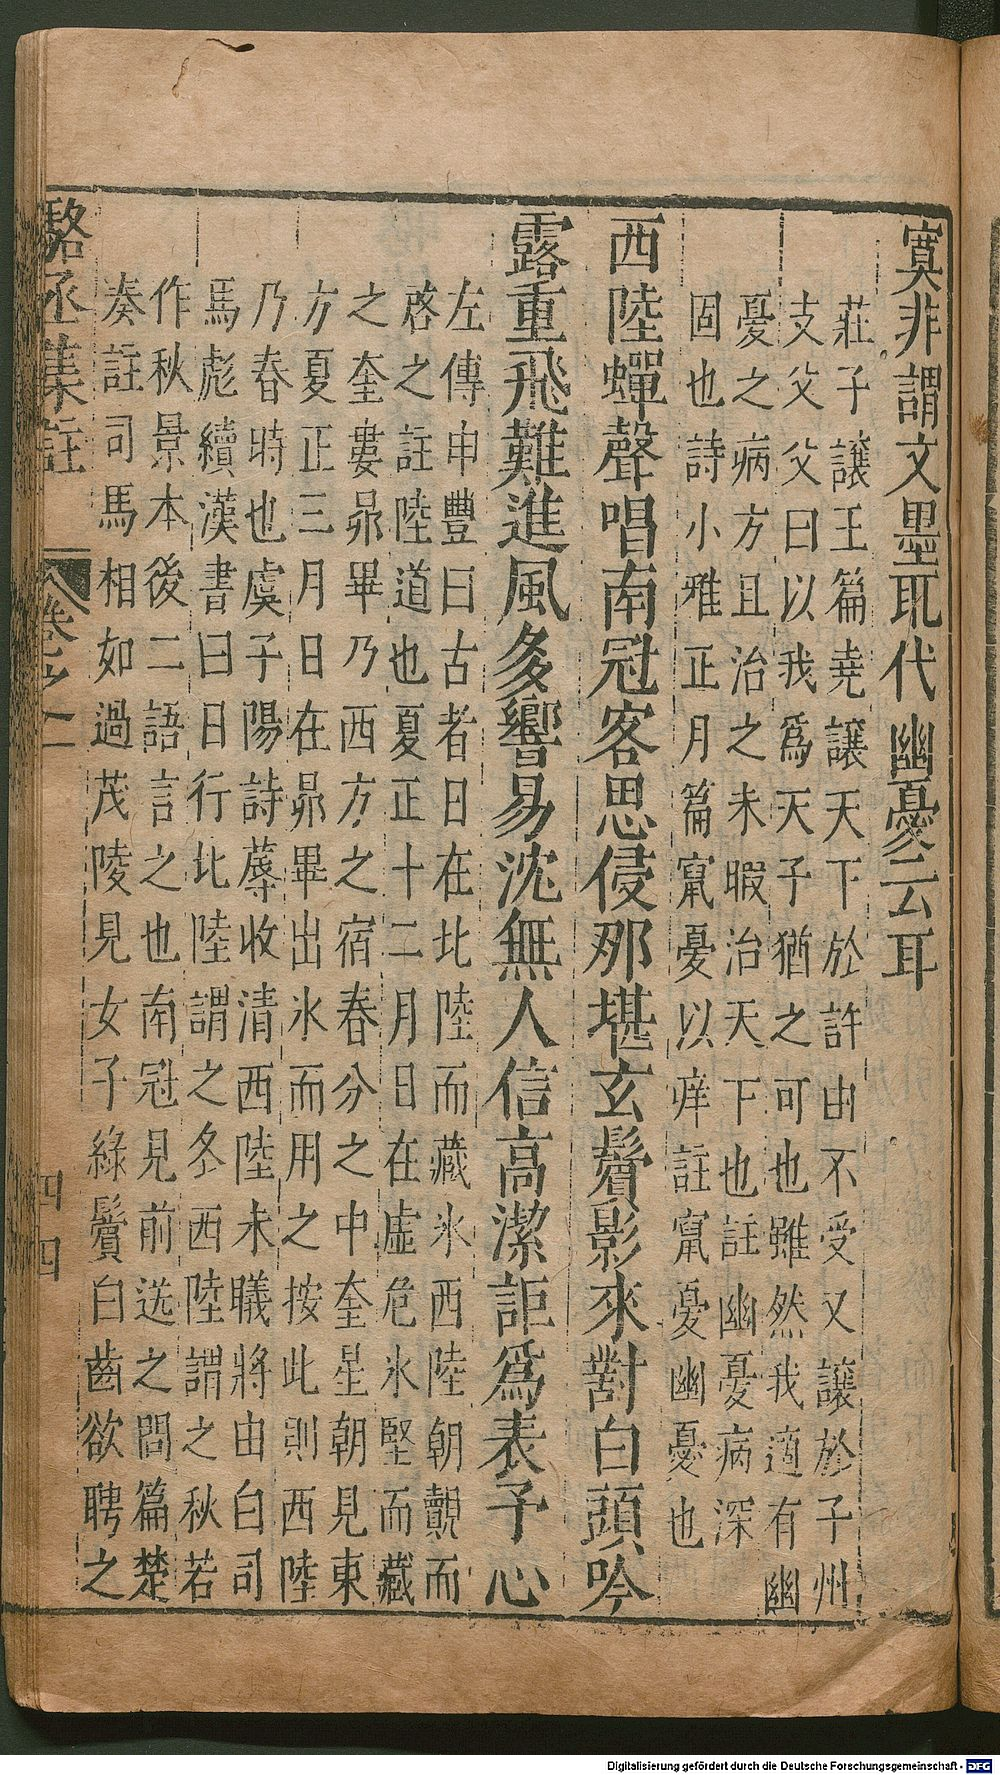 寞非謂文墨取代幽憂云耳
莊子讓王篇堯讓天下於許由不受又讓於子州
支父父曰以我爲天子猶之可也雖然我適有幽
憂之病方且治之未暇治天下也註幽憂病深
固也詩小雅正月篇䆮憂以痒註䆮憂幽憂也
西陸蟬聲唱南冠客思侵那堪玄鬢影來對白頭吟
露重飛難進風多響易沈無人信高潔詎爲表予心
左傳申豐曰古者日在北陸而藏氷西陸朝覿而
啓之註陸道也夏正十二月日在虛危氷堅而藏
之奎婁昴畢乃西方之宿春分之中奎星朝見東
方夏正三月日在昴畢出氷而用之按此則西陸
乃春時也虞子陽詩蓐收清西陸未曦將由白司
馬彪續漢書曰日行北陸謂之冬西陸謂之秋若
作秋景本後二語言之也南冠見前选之問篇楚
奏註司馬相如過茂陵見女子綠鬢白齒欲聘之
駱丞集註
卷之二
四四
Digitalisierung gefördert durch die Deutsche Forschungsgemeinschaft - DFG